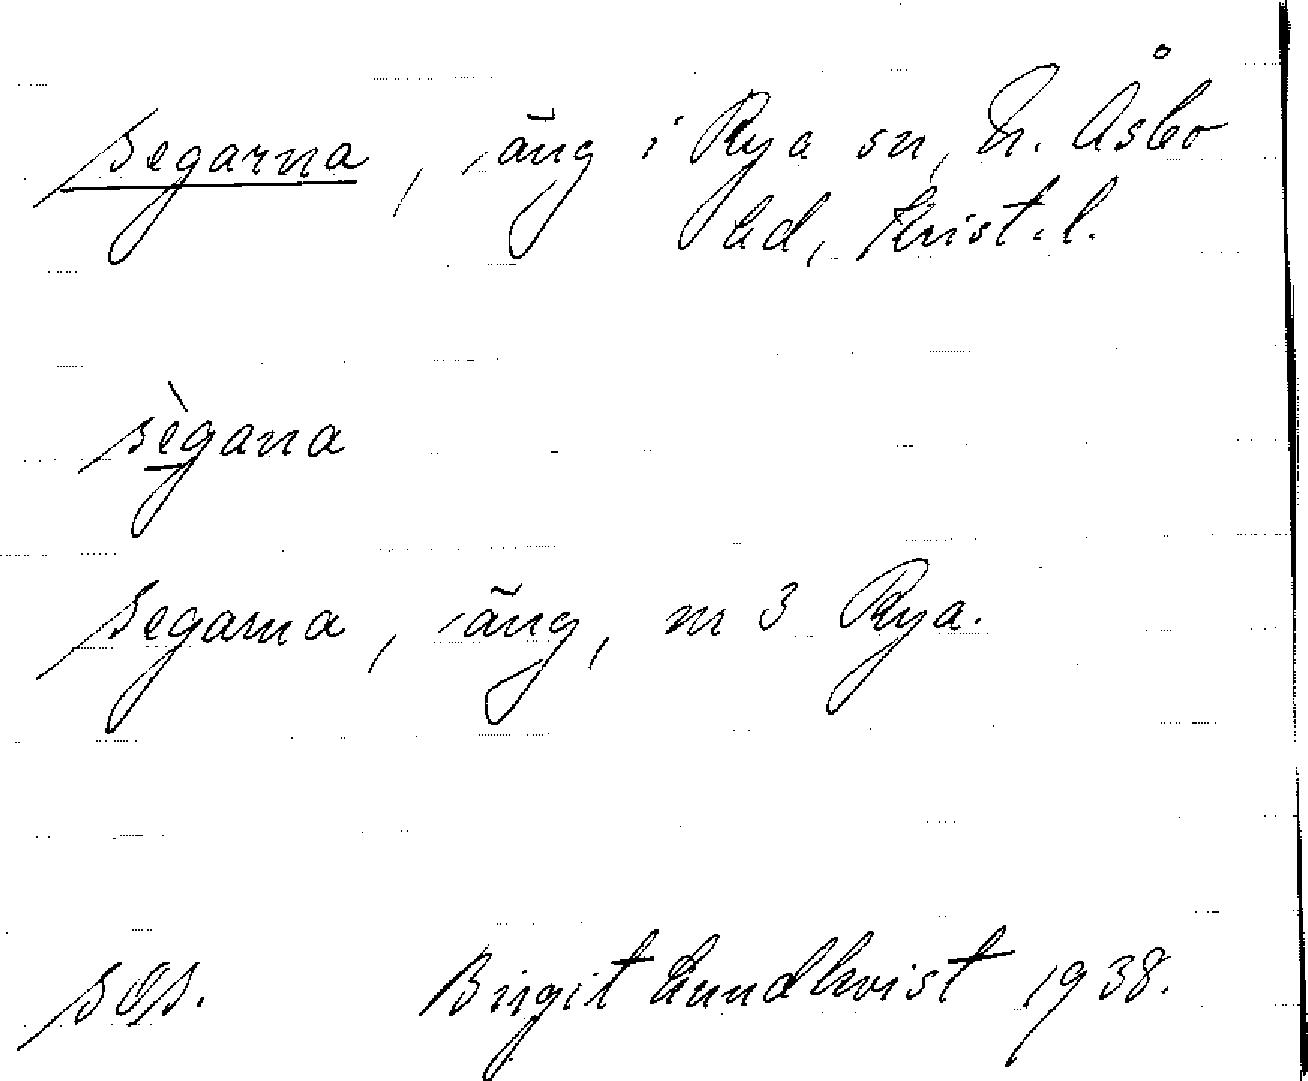 segarna, äng i Rya sn, N. Åsbo
hd, Krist.l.
sègana
segarna, äng, m 3 Rya.
Birgit Lundkvist 1938.